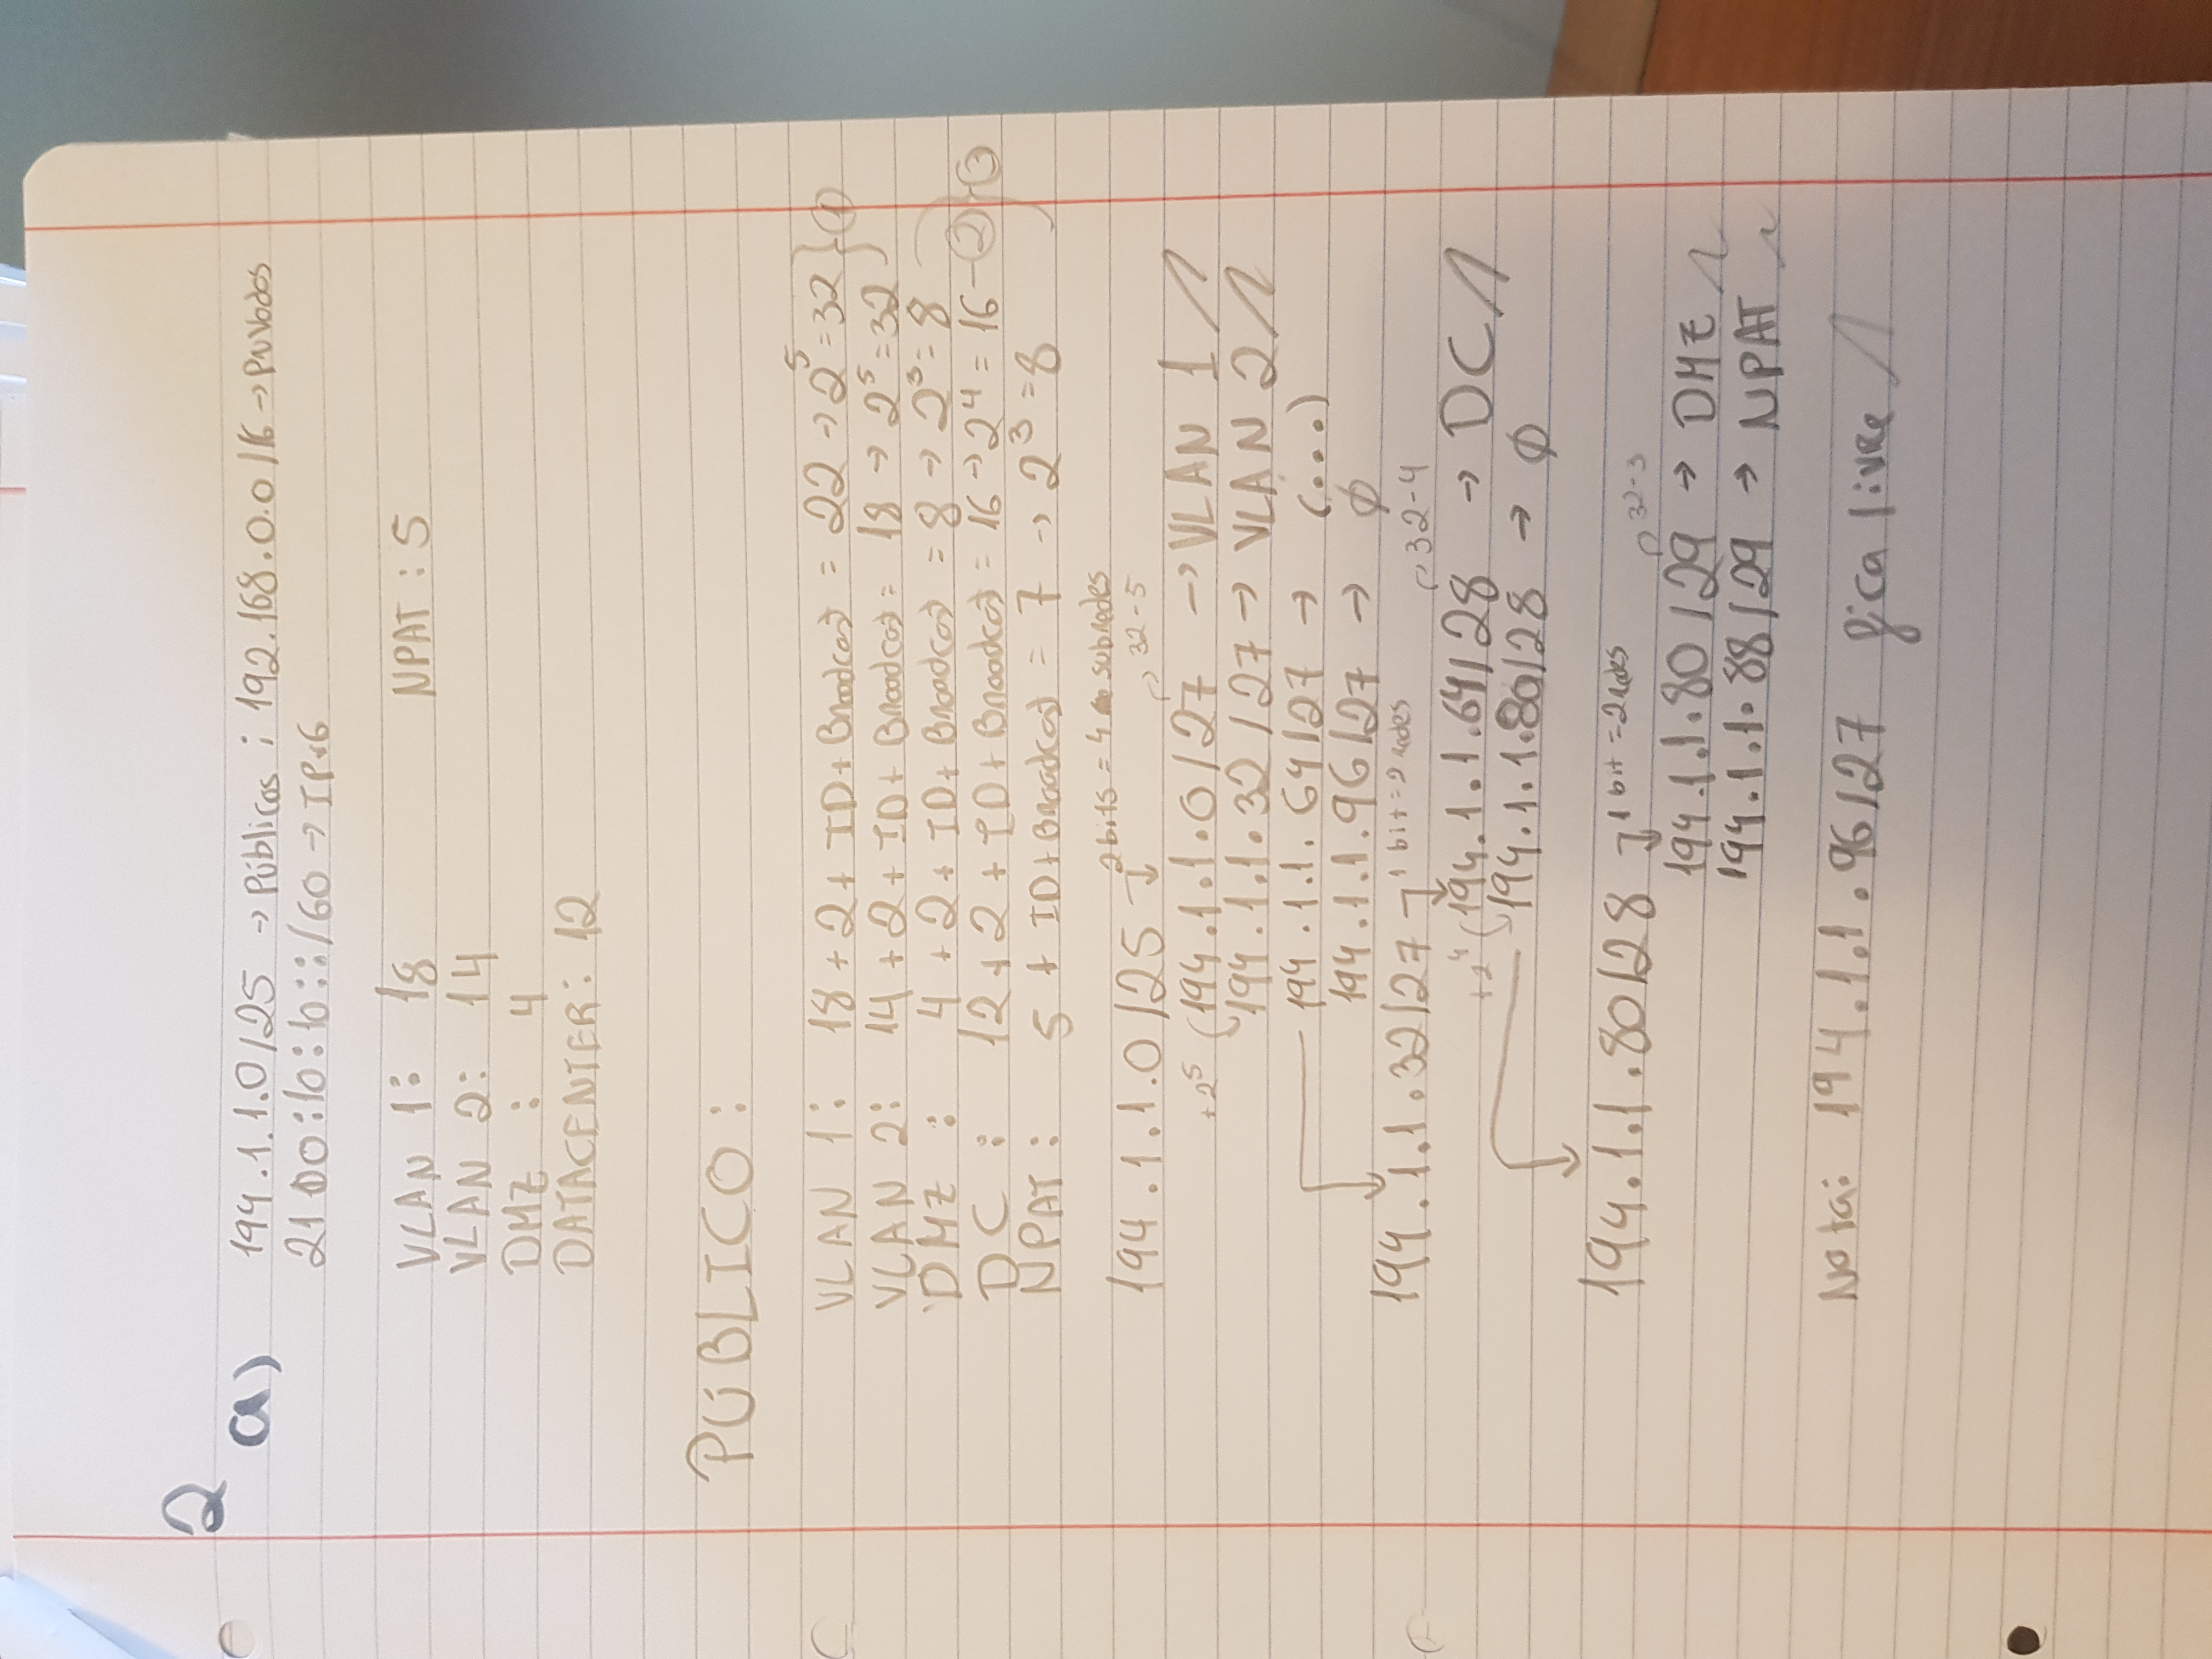 2
a) 194.1.1.0/25 → Públicos ; 192.168.0.0/16 → Privados
21D0:10:b::/60 → IPv6
VLAN 1: 18 NPAT: 5
VLAN 2: 14
DMZ : 4
DATACENTER: 12
PÚBLICO:
VLAN 1: 18 + 2 + ID + Broadcast = 22 → 2^5 = 32 } ①
VLAN 2: 14 + 2 + ID + Broadcast = 18 → 2^5 = 32
DMZ : 4 + 2 + ID + Broadcast = 8 → 2^3 = 8
DC : 12 + 2 + ID + Broadcast = 16 → 2^4 = 16 - ② } ③
NPAT: 5 + ID + Broadcast = 7 → 2^3 = 8
194.1.1.0/25 2 bits = 4 subredes
+2^5 ( 194.1.1.0/27 → VLAN 1 32-5
194.1.1.32/27 → VLAN 2
194.1.1.64/27 → (...)
194.1.1.96/27 → ∅
194.1.1.32/27 1 bit = 2 redes 32-4
+2^4 ( 194.1.1.64/28 → DC
194.1.1.80/28 → ∅
194.1.1.80/28 1 bit = 2 redes 32-3
194.1.1.80/29 → DMZ
194.1.1.88/29 → NPAT
Nota: 194.1.1.96/27 fica livre